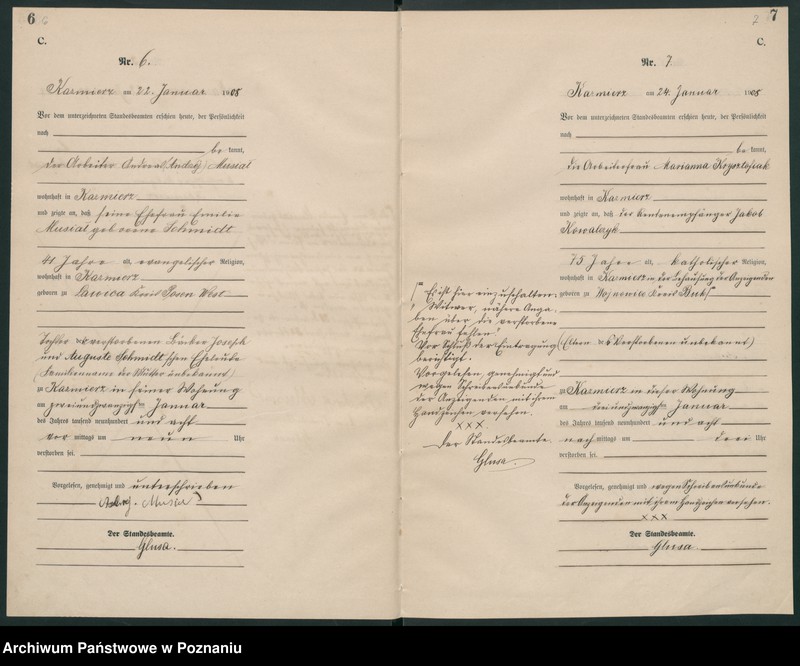 6 6
C.
Nr. 6.
Kazmierz am 22. Januar 1908
Vor dem unterzeichneten Standesbeamten erschien heute, der Persönlichkeit
nach
be kannt,
der Arbeiter Andreas (Andrzej) Musial
wohnhaft in Kazmierz
und zeigte an, daß seine Ehefrau Emilie
Musial geborene Schmidt
41 Jahre alt, evangelischer Religion,
wohnhaft in Kazmierz
geboren zu Lawica Kreis Posen West
Tochter der verstorbenen Joseph
und Auguste Schmidt'schen Eheleute
(Familienname der Mutter unbekannt)
zu Kazmierz in seiner Wohnung
am zweiundzwanzigsten Januar
des Jahres tausend neunhundert und acht
vor mittags um neun Uhr
verstorben sei.
Vorgelesen, genehmigt und unterschrieben
Musial
Der Standesbeamte.
Glusa.
7 7
C.
Nr. 7.
Kazmierz am 24. Januar 1908
Vor dem unterzeichneten Standesbeamten erschien heute, der Persönlichkeit
nach
be kannt,
die Arbeiterfrau Marianna Krysztofiak
wohnhaft in Kazmierz
und zeigte an, daß der Rentenempfänger Jakob
Kowalczyk
75 Jahre alt, katholischer Religion,
wohnhaft in Kazmierz in der Behausung der Anzeigenden
geboren zu Wojnowice Kreis Buk
(Eltern des Verstorbenen unbekannt)
zu Kazmierz in dieser Wohnung
am dreiundzwanzigsten Januar
des Jahres tausend neunhundert und acht
nach mittags um drei Uhr
verstorben sei.
Vorgelesen, genehmigt und wegen Schreibensunkunde
der Anzeigenden mit ihrem Handzeichen versehen.
XXX
Der Standesbeamte.
Glusa.
Es ist hier einzuschalten:
Witwer, nähere Anga-
ben über die verstorbene
Ehefrau fehlen
Vor Schluß der Eintragung
berichtigt.
Vorgelesen, genehmigt und
wegen Schreibensunkunde
der Anzeigenden mit ihrem
Handzeichen versehen.
XXX.
Der Standesbeamte.
Glusa.
Archiwum Państwowe w Poznaniu